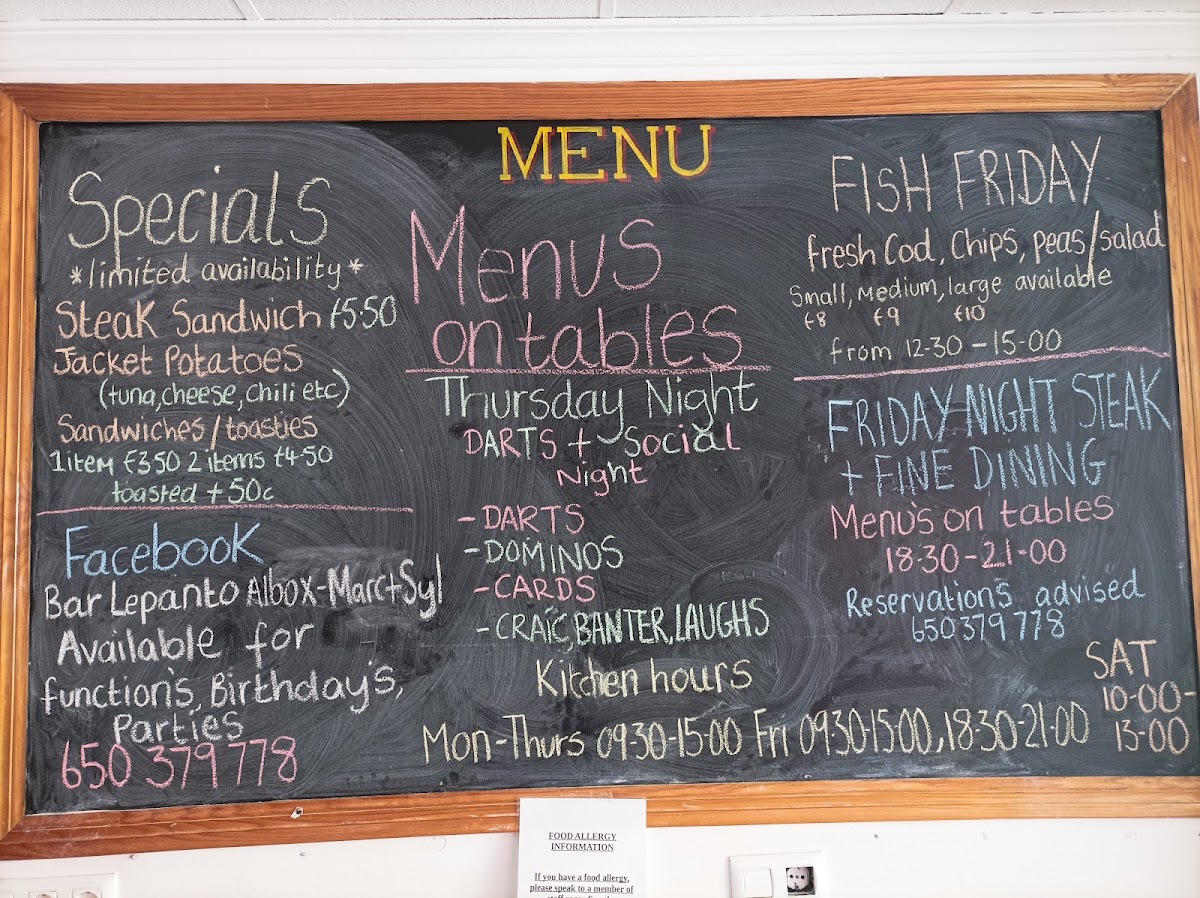 MENU
Specials
*limited availability*
Steak Sandwich €5.50
Jacket Potatoes
(tuna, cheese, chili etc)
Sandwiches / toasties
1 item €3.50 2 items €4.50
toasted + 50c
Facebook
Bar Lepanto Albox-Marc+Syl
Available for
function's, Birthday's,
Parties
650 379 778
Menus
on tables
Thursday Night
DARTS + Social
Night
- DARTS
- DOMINOS
- CARDS
- CRAIC, BANTER, LAUGHS
Kitchen hours
Mon-Thurs 09.30-15.00 Fri 09.30-15.00, 18.30-21.00
SAT
10-00-
13-00
FISH FRIDAY
fresh Cod, Chips, Peas/salad
Small, Medium, large available
€8 €9 €10
from 12-30 - 15-00
FRIDAY NIGHT STEAK
+ FINE DINING
Menu's on tables
18-30-21-00
Reservations advised
650 379 778
FOOD ALLERGY
INFORMATION
If you have a food allergy,
please speak to a member of